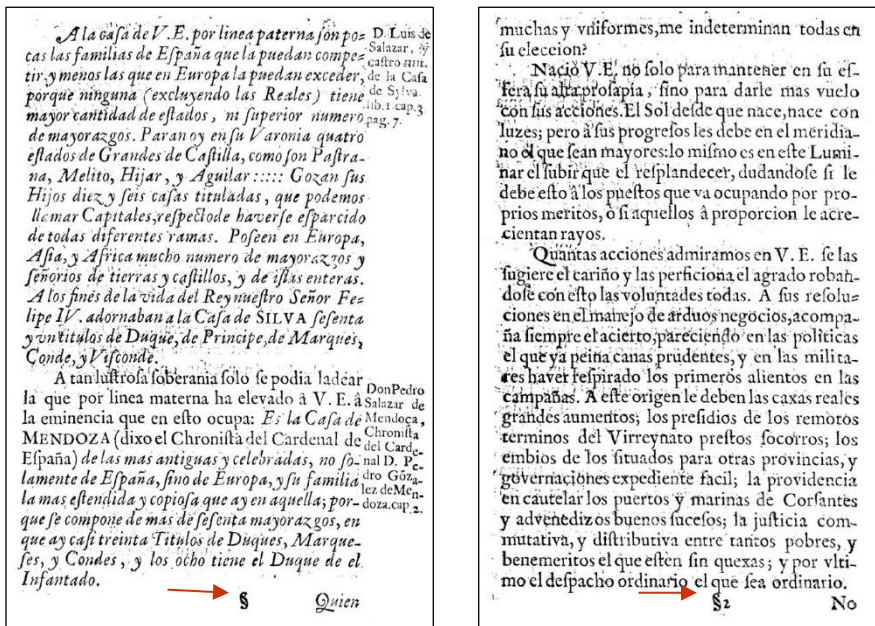 A la casa de V.E. por linea paterna son po=
cas las familias de España que la puedan compe=
tir, y menos las que en Europa la puedan exceder,
porque ninguna (excluyendo las Reales) tiene
mayor cantidad de estados, ni superior numero
de mayorazgos. Paran oy en su Varonia quatro
estados de Grandes de Castilla, como son Pastra-
na, Melito, Hijar, y Aguilar ::::: Gozan sus
Hijos diez y seis casas tituladas, que podemos
llamar Capitales, respecto de haverse esparcido
de todas diferentes ramas. Poseen en Europa,
Asia, y Africa mucho numero de mayorazgos y
señorios de tierras y castillos, y de islas enteras.
A los fines de la vida del Rey nuestro Señor Fe=
lipe IV. adornaban a la Casa de SILVA sesenta
y un titulos de Duque, de Principe, de Marques,
Conde, y Visconde.
A tan lustrosa soberania solo se podia ladear
la que por linea materna ha elevado à V. E. â
la eminencia que en esto ocupa: Es la Casa de
MENDOZA (dixo el Chronista del Cardenal de
España) de las mas antiguas y celebradas, no so-
lamente de España, sino de Europa, y su familia
la mas estendida y copiosa que ay en aquella; por-
que se compone de mas de sesenta mayorazgos, en
que ay casi treinta Titulos de Duques, Marque-
ses, y Condes, y los ocho tiene el Duque de el
Infantado.
§ Quien
D. Luis de
Salazar, y
castro
de la Casa
de Sylva.
lib. 1. cap. 3.
pag. 7.
Don Pedro
Salazar de
Mendoça,
Chronista
del Carde-
nal D. Pe-
dro Góza-
lez de Men-
doza. cap. 2.
muchas y vniformes, me indeterminan todas en
su eleccion?
Naciò V.E. no solo para mantener en su es-
fera su alta prosapia, sino para darle mas vuelo
con sus acciones. El Sol desde que nace, nace con
luzes; pero à sus progresos les debe en el meridia-
no el que sean mayores: lo mismo es en este Lumi-
nar el subir que el resplandecer, dudandose si le
debe esto à los puestos que va ocupando por pro-
prios meritos, ò si aquellos â proporcion le acre-
cientan rayos.
Quantas acciones admiramos en V. E. se las
sugiere el cariño y las perficiona el agrado roban-
dose con esto las voluntades todas. A sus resolu=
ciones en el manejo de arduos negocios, acompa-
ña siempre el acierto, pareciendo en las politicas
el que ya peina canas prudentes, y en las milita-
res haver respirado los primeros alientos en las
campañas. A este origen le deben las caxas reales
grandes aumentos; los presidios de los remotos
terminos del Virreynato prestos socorros; los
embios de los situados para otras provincias, y
governaciones expediente facil; la providencia
en cautelar los puertos y marinas de Corsantes
y advenedizos buenos sucesos; la justicia com-
mutativa, y distributiva entre tantos pobres, y
benemeritos el que esten sin quexas; y por vlti-
mo el despacho ordinario el que sea ordinario.
§2 No